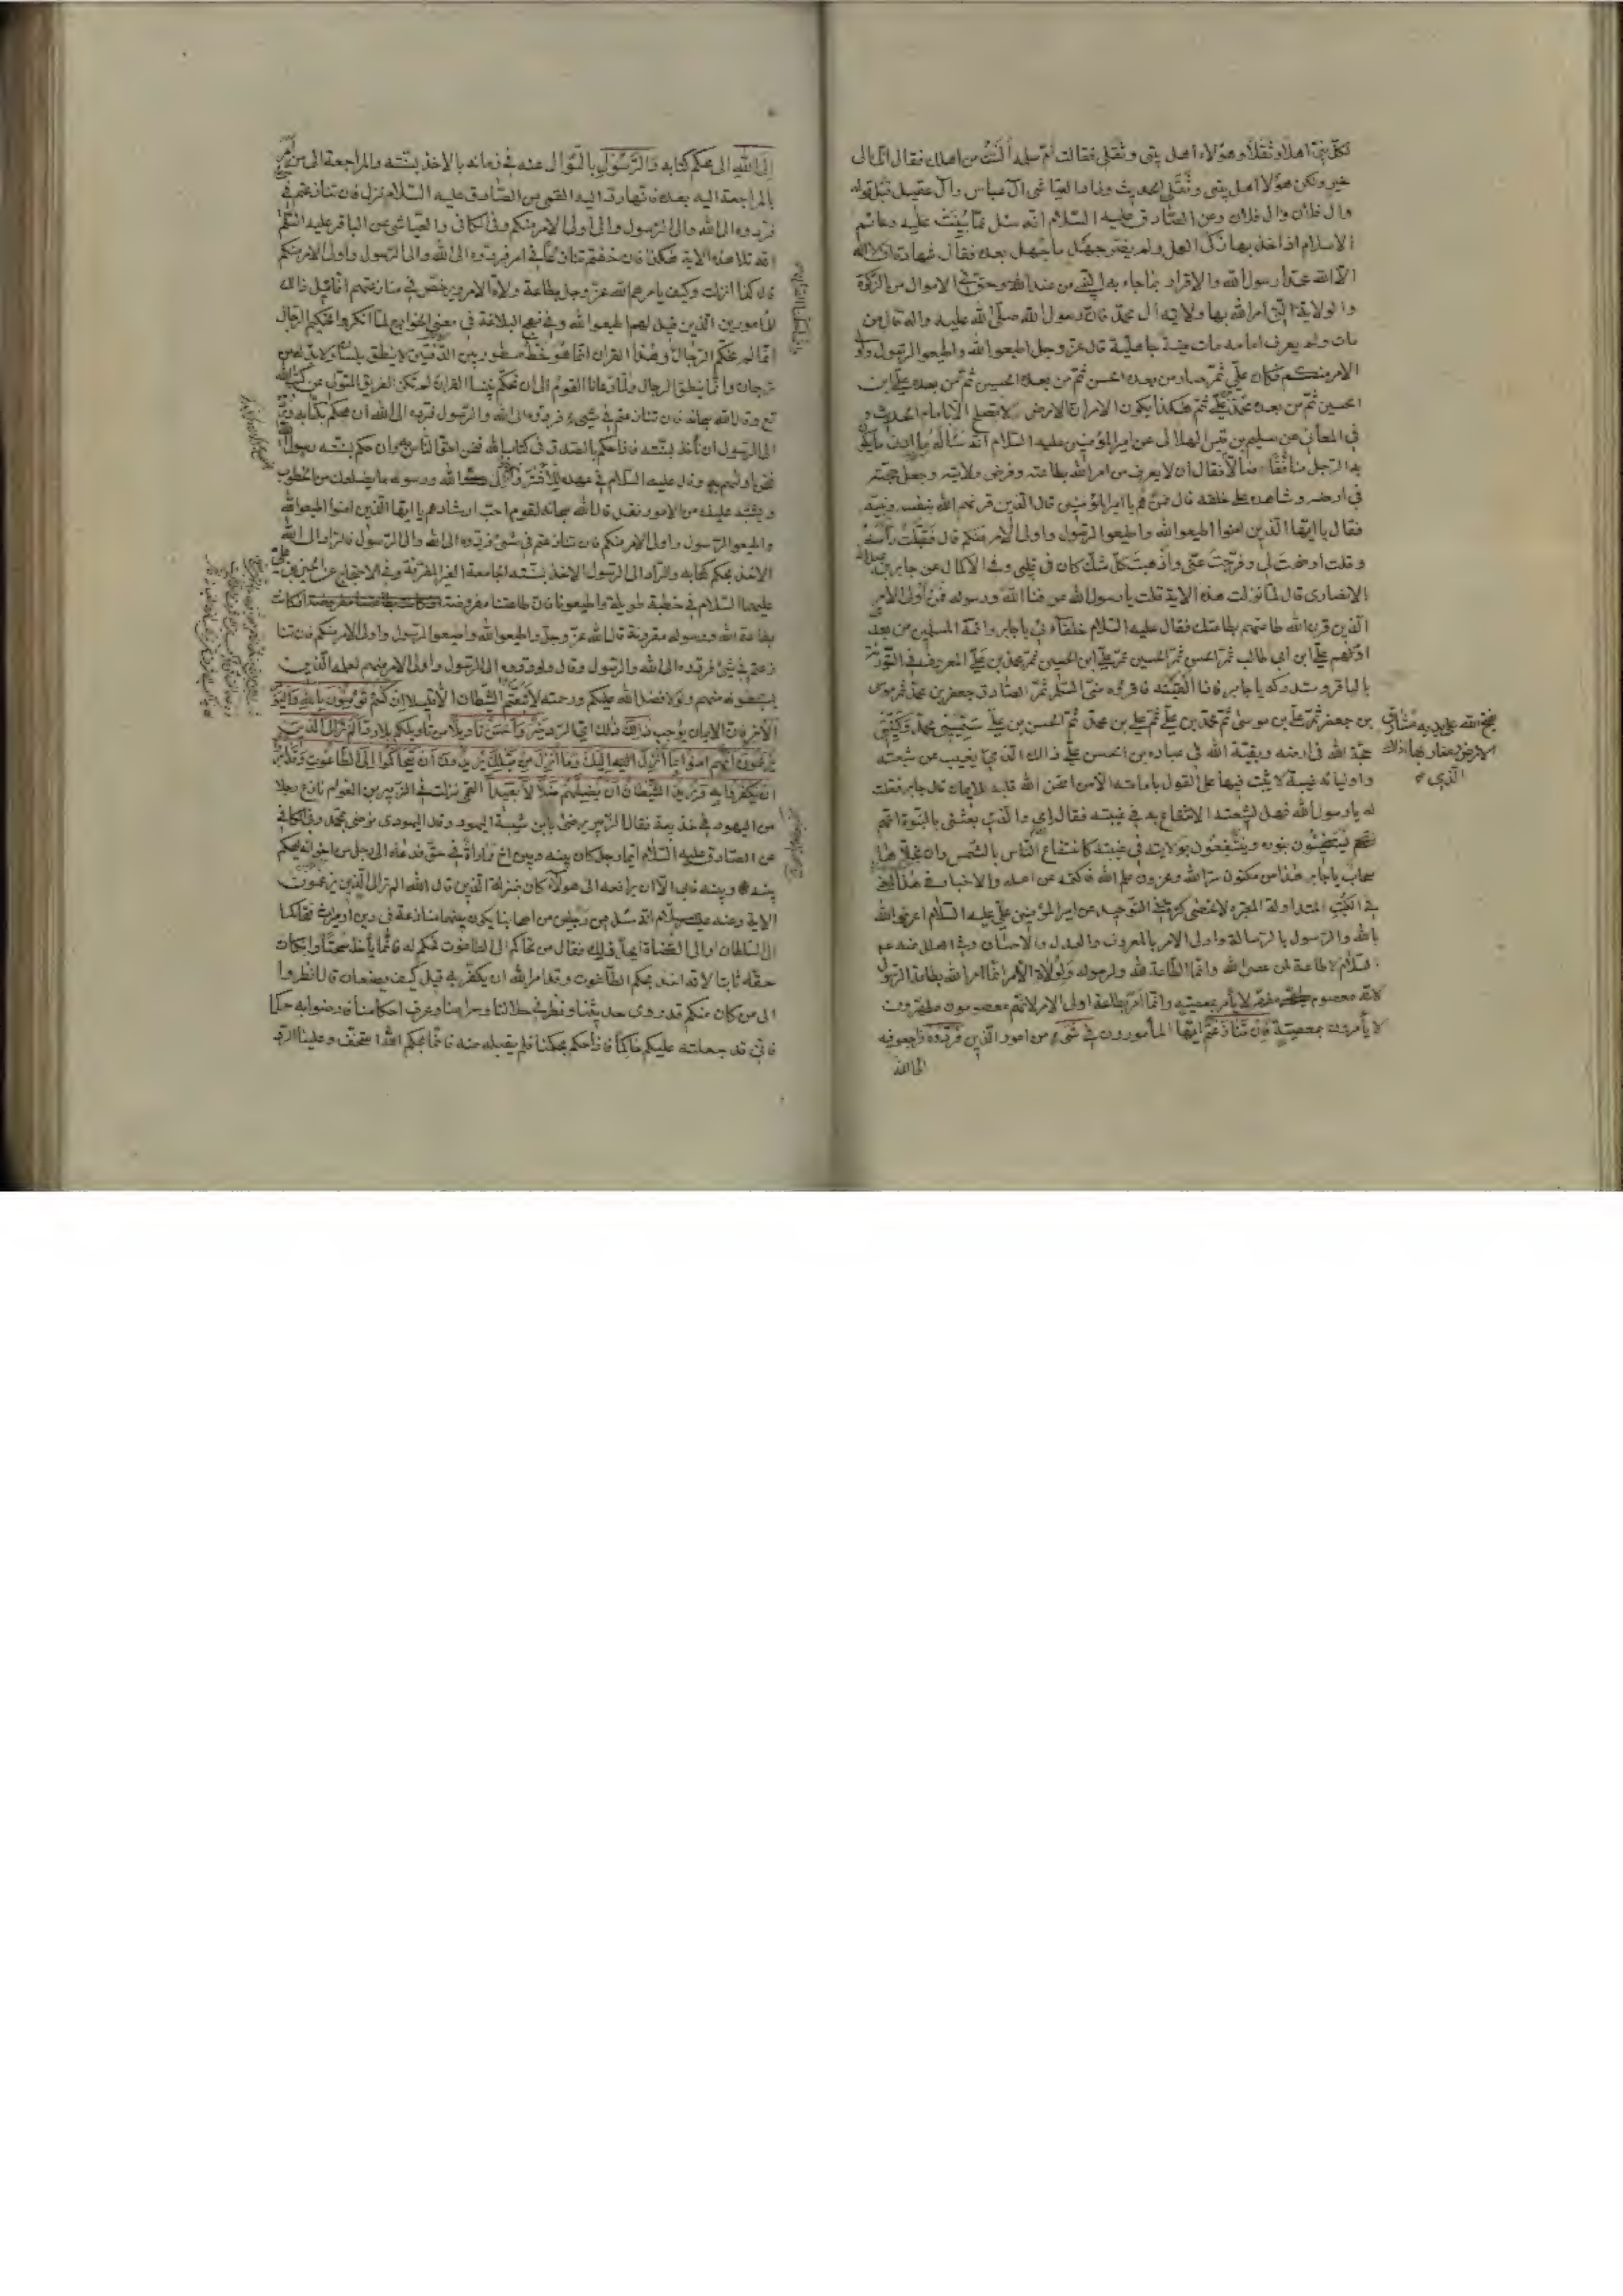 لكل نبي اهلا وثقلا وهؤلاء اهل بيتي وثقلي فقالت ام سلمة ألست من اهلك فقال انك الى
خير ولكن هؤلاء اهل بيتي وثقلي الحديث وزاد العياشي آل عباس وآل عقيل قبل قوله
وال فلان وال فلان وعن الصادق عليه السلام انه سئل عما بنيت عليه دعائم
الاسلام اذا اخذ بها زكى العمل ولم يضر جهل ما جهل بعده فقال شهادة ان لا اله
الا الله محمدا رسول الله والاقرار بما جاء به من عند الله وحق في الاموال من الزكوة
والولاية التي امر الله بها ولاية آل محمد فان رسول الله صلى الله عليه واله قال من
مات ولم يعرف امامه مات ميتة جاهلية قال عز وجل اطيعوا الله واطيعوا الرسول واولى
الامر منكم فكان علي ثم صار من بعده الحسن ثم من بعده الحسين ثم من بعده علي ابن
الحسين ثم من بعده محمد بن علي ثم هكذا يكون الامر ان الارض لا تصلح الا بامام الحديث و
في المعاني عن سليم بن قيس الهلالي عن امير المؤمنين عليه السلام انه سأله ما ادنى ما يكون
به الرجل ضالا فقال ان لا يعرف من امر الله بطاعته وفرض ولايته وجعل حجته
في ارضه وشاهده على خلقه قال فمن هم يا امير المؤمنين قال الذين قرنهم الله بنفسه ونبيه
فقال يا ايها الذين امنوا اطيعوا الله واطيعوا الرسول واولى الامر منكم قال فقبلت رأسه
وقلت اوضحت لي وفرجت عني واذهبت كل شك كان في قلبي وفي الاكمال عن جابر بن عبد الله
الانصاري قال لما نزلت هذه الاية قلت يا رسول الله عرفنا الله ورسوله فمن اولى الامر
الذين قرن الله طاعتهم بطاعتك فقال عليه السلام خلفائي يا جابر وائمة المسلمين من بعدي
اولهم علي ابن ابي طالب ثم الحسن ثم الحسين ثم علي ابن الحسين ثم محمد بن علي المعروف في التورية
بالباقر وستدركه يا جابر فاذا لقيته فاقرئه مني السلام ثم الصادق جعفر بن محمد ثم موسى
بن جعفر ثم علي بن موسى ثم محمد بن علي ثم علي بن محمد ثم الحسن بن علي ثم سميي محمد وكنيي
حجة الله في ارضه وبقية الله في عباده بن الحسن علي ذاك الذي يغيب عن شيعته
واوليائه غيبة لا يثبت فيها على القول بامامته الا من امتحن الله قلبه للايمان قال جابر فقلت
له يا رسول الله فهل لشيعته الانتفاع به في غيبته فقال اي والذي بعثني بالنبوة انهم
يستضيئون بنوره وينتفعون بولايته في غيبته كانتفاع الناس بالشمس وان
سحاب يا جابر هذا من مكنون سر الله ومخزون علم الله فاكتمه عن اهله والاخبار في هذا المعنى
في الكتب المتداولة المعتبرة لا تحصى كثرة وفي التوحيد عن امير المؤمنين علي عليه السلام اعرفوا الله
بالله والرسول بالرسالة واولى الامر بالمعروف والعدل والاحسان وفي العلل عنه عليه
السلام لا طاعة لمن عصى الله وانما الطاعة لله ولرسوله ولولاة الامر انما امر الله بطاعة الرسول
لانه معصوم مطهر لا يأمر بمعصيته وانما امر بطاعة اولى الامر لانهم معصومون مطهرون
لا يأمرون بمعصية فان تنازعتم ايها المأمورون في شيء من امور الدين فردوه فراجعوا فيه
الى الله
الذي
الى الله الى محكم كتابه والرسول بالسؤال عنه في زمانه بالاخذ بسنته والمراجعة الى من امر
بالمراجعة اليه بعده فانها رد اليه القمي عن الصادق عليه السلام نزل فان تنازعتم في
فردوه الى الله والى الرسول والى اولى الامر منكم وفي الكافي والعياشي عن الباقر عليه السلم
انه تلا هذه الاية هكذا فان خفتم تنازعا في امر فردوه الى الله والى الرسول واولى الامر منكم
قال كذا انزلت وكيف يامرهم الله عز وجل بطاعة ولاة الامر ويرخص في منازعتهم انما قيل ذلك
للمأمورين الذين قيل لهم اطيعوا الله وفي نهج البلاغة في معنى الخوارج لما انكروا تحكيم الرجال
انا لم نحكم الرجال وهذا القران انما هو خط مسطور بين الدفتين لا ينطق بلسان ولا بد له من
ترجمان وانما ينطق عنه الرجال ولما دعانا القوم الى ان نحكم بيننا القران لم نكن الفريق المتولي عن كتاب الله
تع وقال الله سبحانه فان تنازعتم في شيء فردوه الى الله والرسول فرده الى الله ان نحكم بكتابه ورده
الى الرسول ان نأخذ بسنته فاذا حكم بالصدق في كتاب الله فنحن احق الناس به وان حكم بسنته رسول الله
فنحن اولاهم به وقال عليه السلام في عهده للاشتر واردد الى الله ورسوله ما يضلعك من الخطوب
ويشتبه عليك من الامور فقد قال الله سبحانه لقوم احب ارشادهم يا ايها الذين امنوا اطيعوا الله
واطيعوا الرسول واولى الامر منكم فان تنازعتم في شيء فردوه الى الله والى الرسول فالراد الى الله
الاخذ بمحكم كتابه والراد الى الرسول الاخذ بسنته الجامعة الغير المفرقة وفي الاحتجاج عن الحسين بن علي
عليهما السلام في خطبة طويلة واطيعونا فان طاعتنا مفروضة اذ كانت
بطاعة الله ورسوله مقرونة قال الله عز وجل اطيعوا الله واطيعوا الرسول واولى الامر منكم فان تنا
زعتم في شيء فردوه الى الله والرسول وقال ولو ردوه الى الرسول واولى الامر منهم لعلمه الذين
يستنبطونه منهم ولولا فضل الله عليكم ورحمته لاتبعتم الشيطان الا قليلا ان كنتم تؤمنون بالله واليوم
الآخر فان الايمان يوجب ذلك ذلك اي الرد خير واحسن تأويلا من تأويلكم بلا رد ألم تر الى الذين
يزعمون انهم امنوا بما انزل اليك وما انزل من قبلك يريدون ان يتحاكموا الى الطاغوت وقد امروا
ان يكفروا به ويريد الشيطان ان يضلهم ضلالا بعيدا القمي نزلت في الزبير بن العوام نازع رجلا
من اليهود في حديقة فقال الزبير نرضى بابن شيبة اليهودي وقال اليهودي نرضى بمحمد وفي الكافي
عن الصادق عليه السلام ايما رجل كان بينه وبين اخ له مماراة في حق فدعاه الى رجل من اخوانه ليحكم
بينه وبينه فابى الا ان يرافعه الى هؤلاء كان بمنزلة الذين قال الله الم تر الى الذين يزعمون
الاية وعنه عليه السلام انه سئل عن رجلين من اصحابنا يكون بينهما منازعة في دين او ميراث فتحاكما
الى السلطان او الى القضاة ايحل ذلك فقال من تحاكم الى الطاغوت فحكم له فانما يأخذ سحتا وان كان
حقه ثابتا لانه اخذ بحكم الطاغوت وقد امر الله ان يكفر به قيل كيف يصنعان قال انظروا
الى من كان منكم قد روى حديثنا ونظر في حلالنا وحرامنا وعرف احكامنا فارضوا به حكما
فاني قد جعلته عليكم حاكما فاذا حكم بحكمنا فلم يقبله منه فانما بحكم الله استخف وعلينا الرد